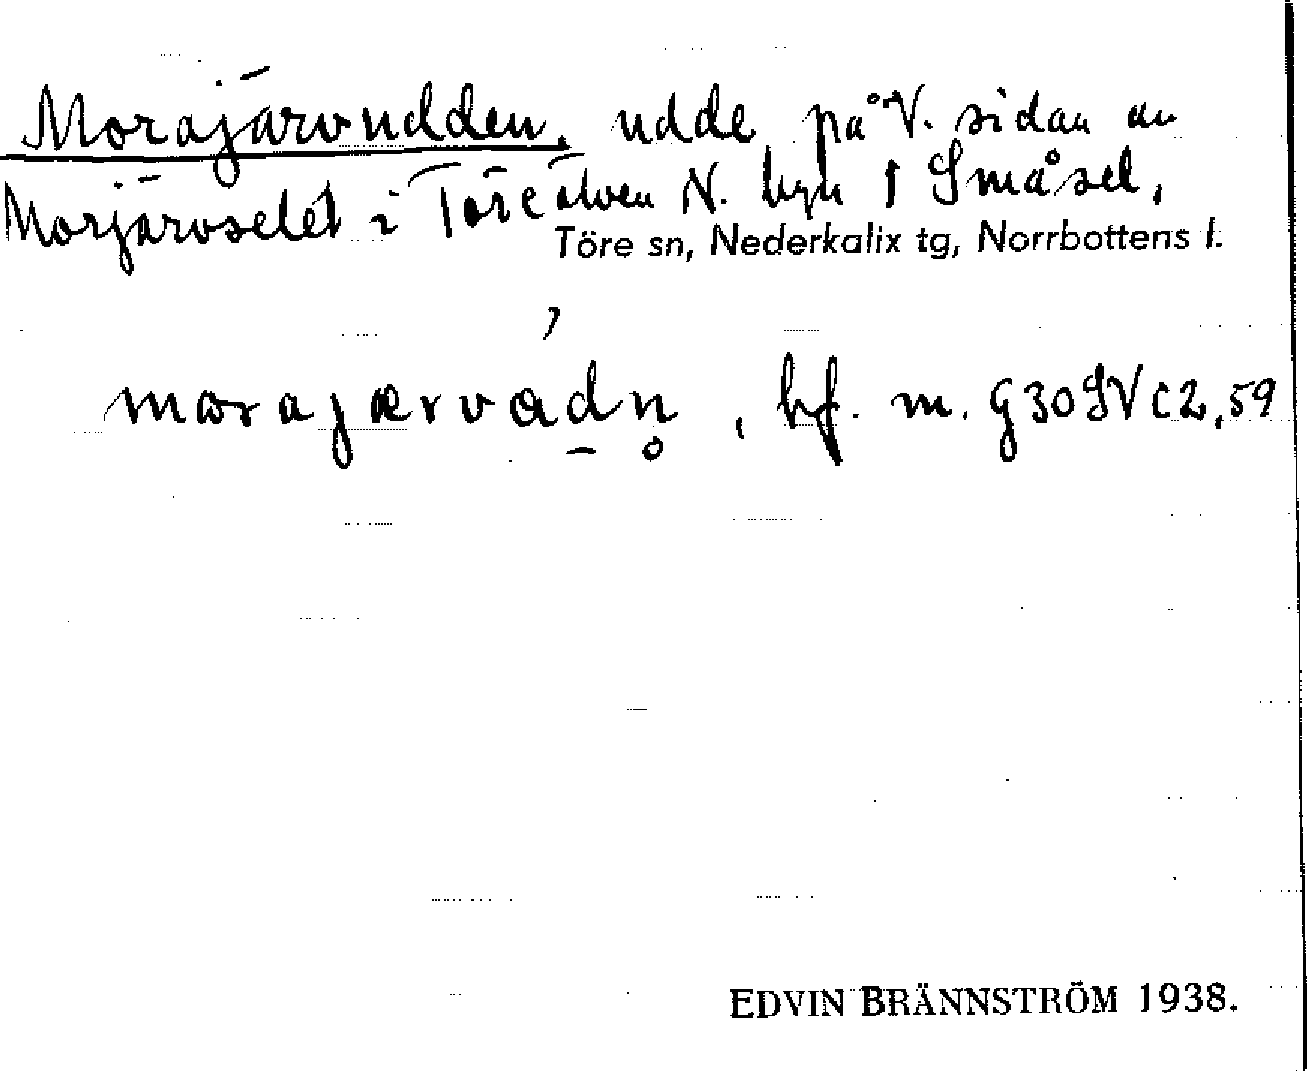 Morajärvudden, udde på V. sidan av
Morjärvselet i Töreälven N. byn i Småsel,
Töre sn, Nederkalix tg, Norrbottens l.
morajærvadn̥, bf. m. G30SVC2,59
EDVIN BRÄNNSTRÖM 1938.